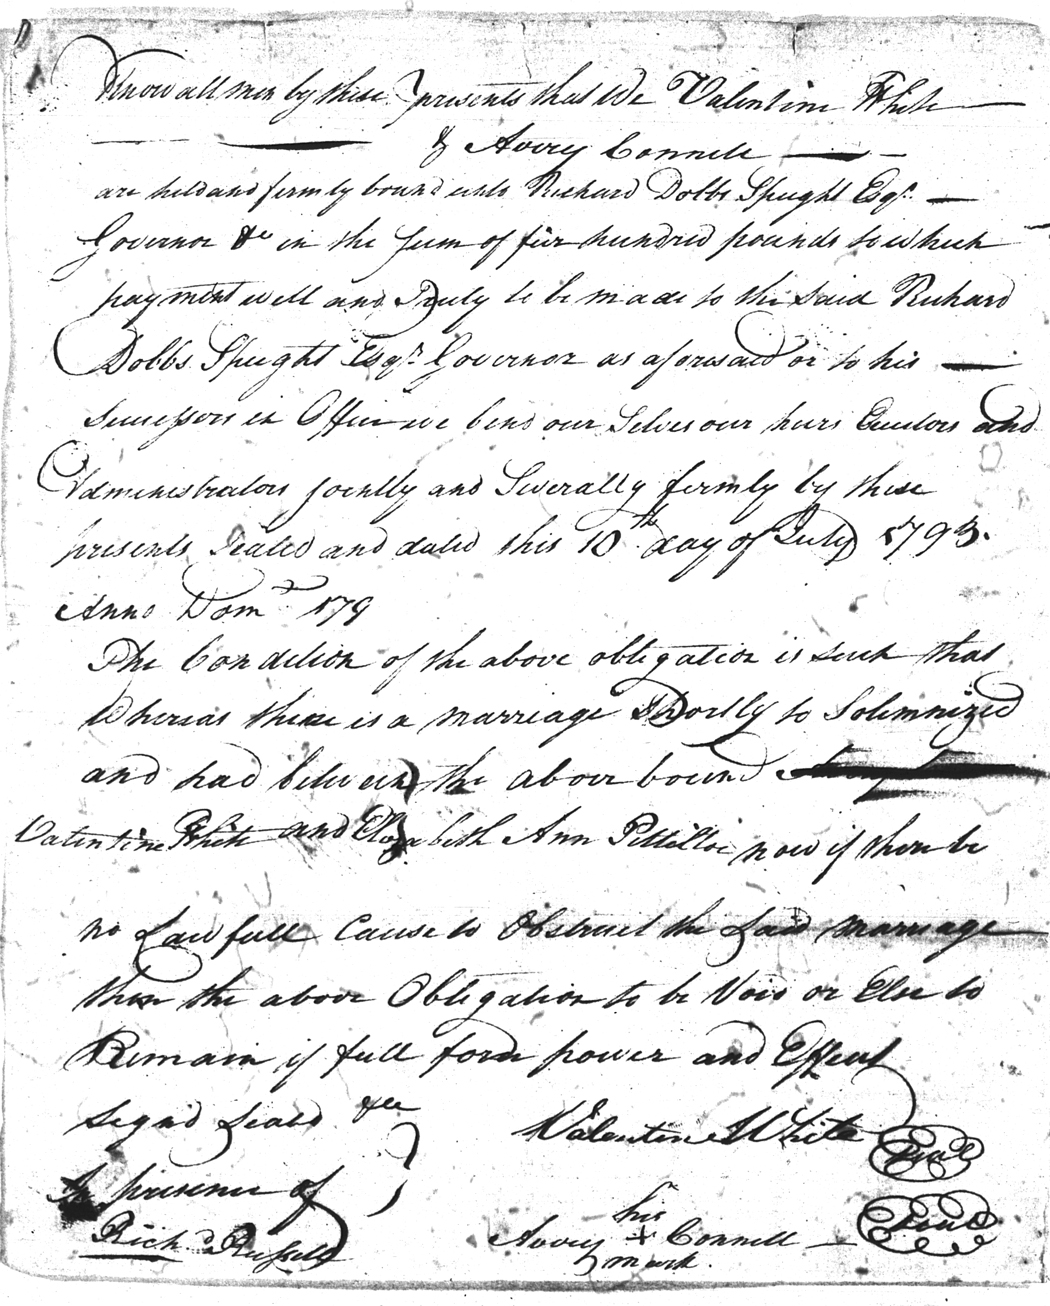 Know all men by these presents that We Valentine White
& Avery Connell
are held and firmly bound unto Richard Dobbs Speight Esqr.
Governor &c in the sum of five hundred pounds to which
payment well and Truly to be made to the said Richard
Dobbs Speight Esqr. Governor as aforesaid or to his
Successors in Office we bend our Selves our heirs Exutors and
Administrators jointly and Severally firmly by these
presents Sealed and dated this 10th day of July 1793.
Anno Dom 179
The Condition of the above obligation is such that
Whereas there is a marriage Shortly to Solemnized
and had between the above bound
Valentine White and Elizabeth Ann Pettilloe now if there be
no Lawfull Cause to Obstruct the Said marriage
then the above Obligation to be Void or Else to
Remain if full force power and Effect
Signd Seald &c
Valentine White Seal
In presence of
his
Avery + Connell Seal
mark.
Richd Russell